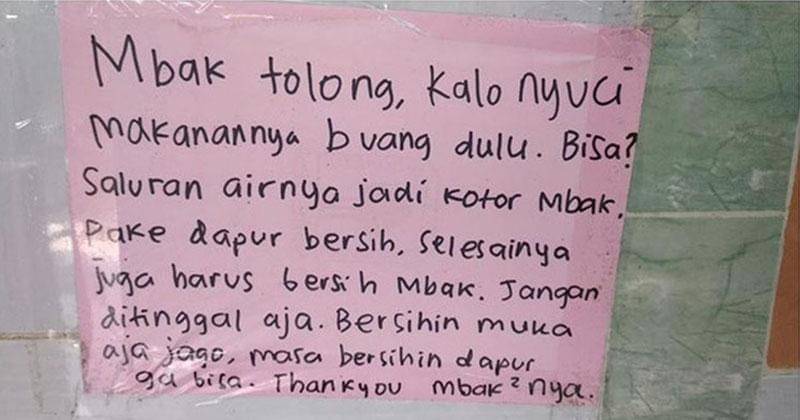 Mbak tolong, kalo nyuci
makanannya buang dulu. Bisa?
Saluran airnya jadi kotor Mbak.
Pake dapur bersih, selesainya
juga harus bersih Mbak. Jangan
ditinggal aja. Bersihin muka
aja jago, masa bersihin dapur
ga bisa. Thankyou mbak² nya.